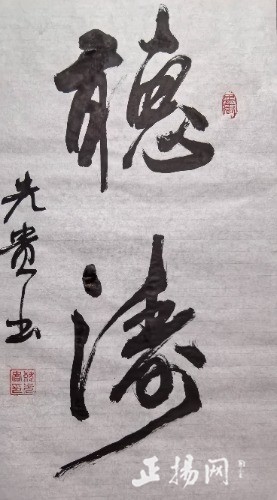 聽濤
先贵书
正揚网